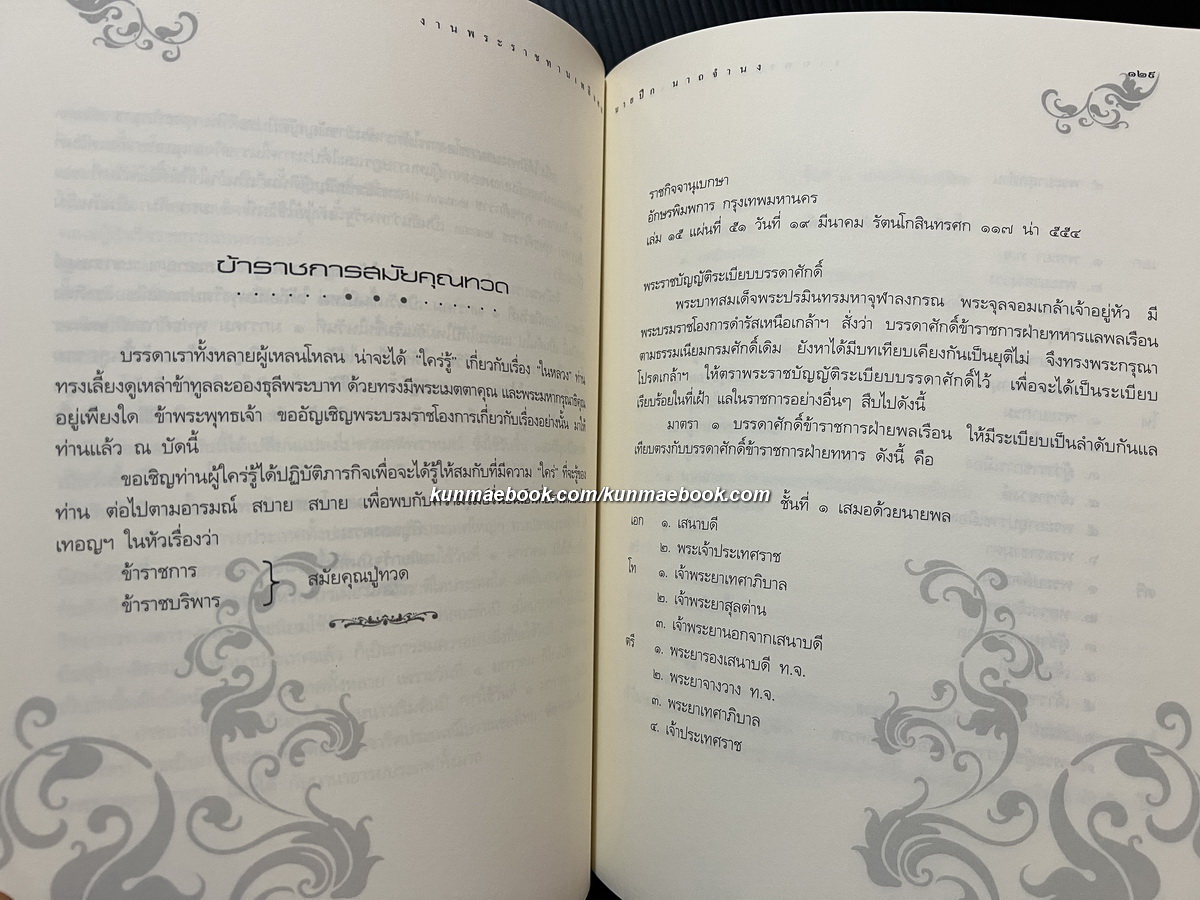 งานพระราชทานเพลิงศพ
ข้าราชการสมัยคุณทวด
บรรดาเราทั้งหลายผู้เหลนโหลน น่าจะได้ "ใคร่รู้" เกี่ยวกับเรื่อง "ในหลวง" ท่าน
ทรงเลี้ยงดูเหล่าข้าทูลละอองธุลีพระบาท ด้วยทรงมีพระเมตตาคุณ และพระมหากรุณาธิคุณ
อยู่เพียงใด ข้าพระพุทธเจ้า ขออัญเชิญพระบรมราชโองการเกี่ยวกับเรื่องอย่างนั้น มาให้
ท่านแล้ว ณ บัดนี้
ขอเชิญท่านผู้ใคร่รู้ได้ปฏิบัติภารกิจเพื่อจะได้รู้ให้สมกับที่มีความ "ใคร่" ที่จะรู้ของ
ท่าน ต่อไปตามอารมณ์ สบาย สบาย เพื่อพบกับความ
เทอญฯ ในหัวเรื่องว่า
ข้าราชการ
ข้าราชบริพาร
} สมัยคุณปู่ทวด
นายปึก นาถจำนง
๑๒๙
ราชกิจจานุเบกษา
อักษรพิมพการ กรุงเทพมหานคร
เล่ม ๑๕ แผ่นที่ ๕๑ วันที่ ๑๙ มีนาคม รัตนโกสินทรศก ๑๑๗ น่า ๕๕๔
พระราชบัญญัติระเบียบบรรดาศักดิ์
พระบาทสมเด็จพระปรมินทรมหาจุฬาลงกรณ พระจุลจอมเกล้าเจ้าอยู่หัว มี
พระบรมราชโองการดำรัสเหนือเกล้าฯ สั่งว่า บรรดาศักดิ์ข้าราชการฝ่ายทหารแลพลเรือน
ตามธรรมเนียมกรมศักดิ์เดิม ยังหาได้มีบทเทียบเคียงกันเป็นยุติไม่ จึงทรงพระกรุณา
โปรดเกล้าฯ ให้ตราพระราชบัญญัติระเบียบบรรดาศักดิ์ไว้ เพื่อจะได้เป็นระเบียบ
เรียบร้อยในที่เฝ้า แลในราชการอย่างอื่นๆ สืบไปดังนี้
มาตรา ๑ บรรดาศักดิ์ข้าราชการฝ่ายพลเรือน ให้มีระเบียบเป็นลำดับกันแล
เทียบตรงกับบรรดาศักดิ์ข้าราชการฝ่ายทหาร ดังนี้ คือ
ชั้นที่ ๑ เสมอด้วยนายพล
เอก ๑. เสนาบดี
๒. พระเจ้าประเทศราช
โท ๑. เจ้าพระยาเทศาภิบาล
๒. เจ้าพระยาสุลต่าน
๓. เจ้าพระยานอกจากเสนาบดี
ตรี ๑. พระยารองเสนาบดี ท.จ.
๒. พระยาจางวาง ท.จ.
๓. พระยาเทศาภิบาล
๔. เจ้าประเทศราช
kunmaebook.com/kunmaebook.com